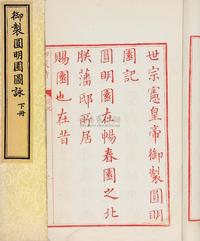 世宗憲皇帝御製圓明
園記
圓明園在暢春園之北
朕藩邸所居
賜園也在昔
御製圓明園圖詠 下冊